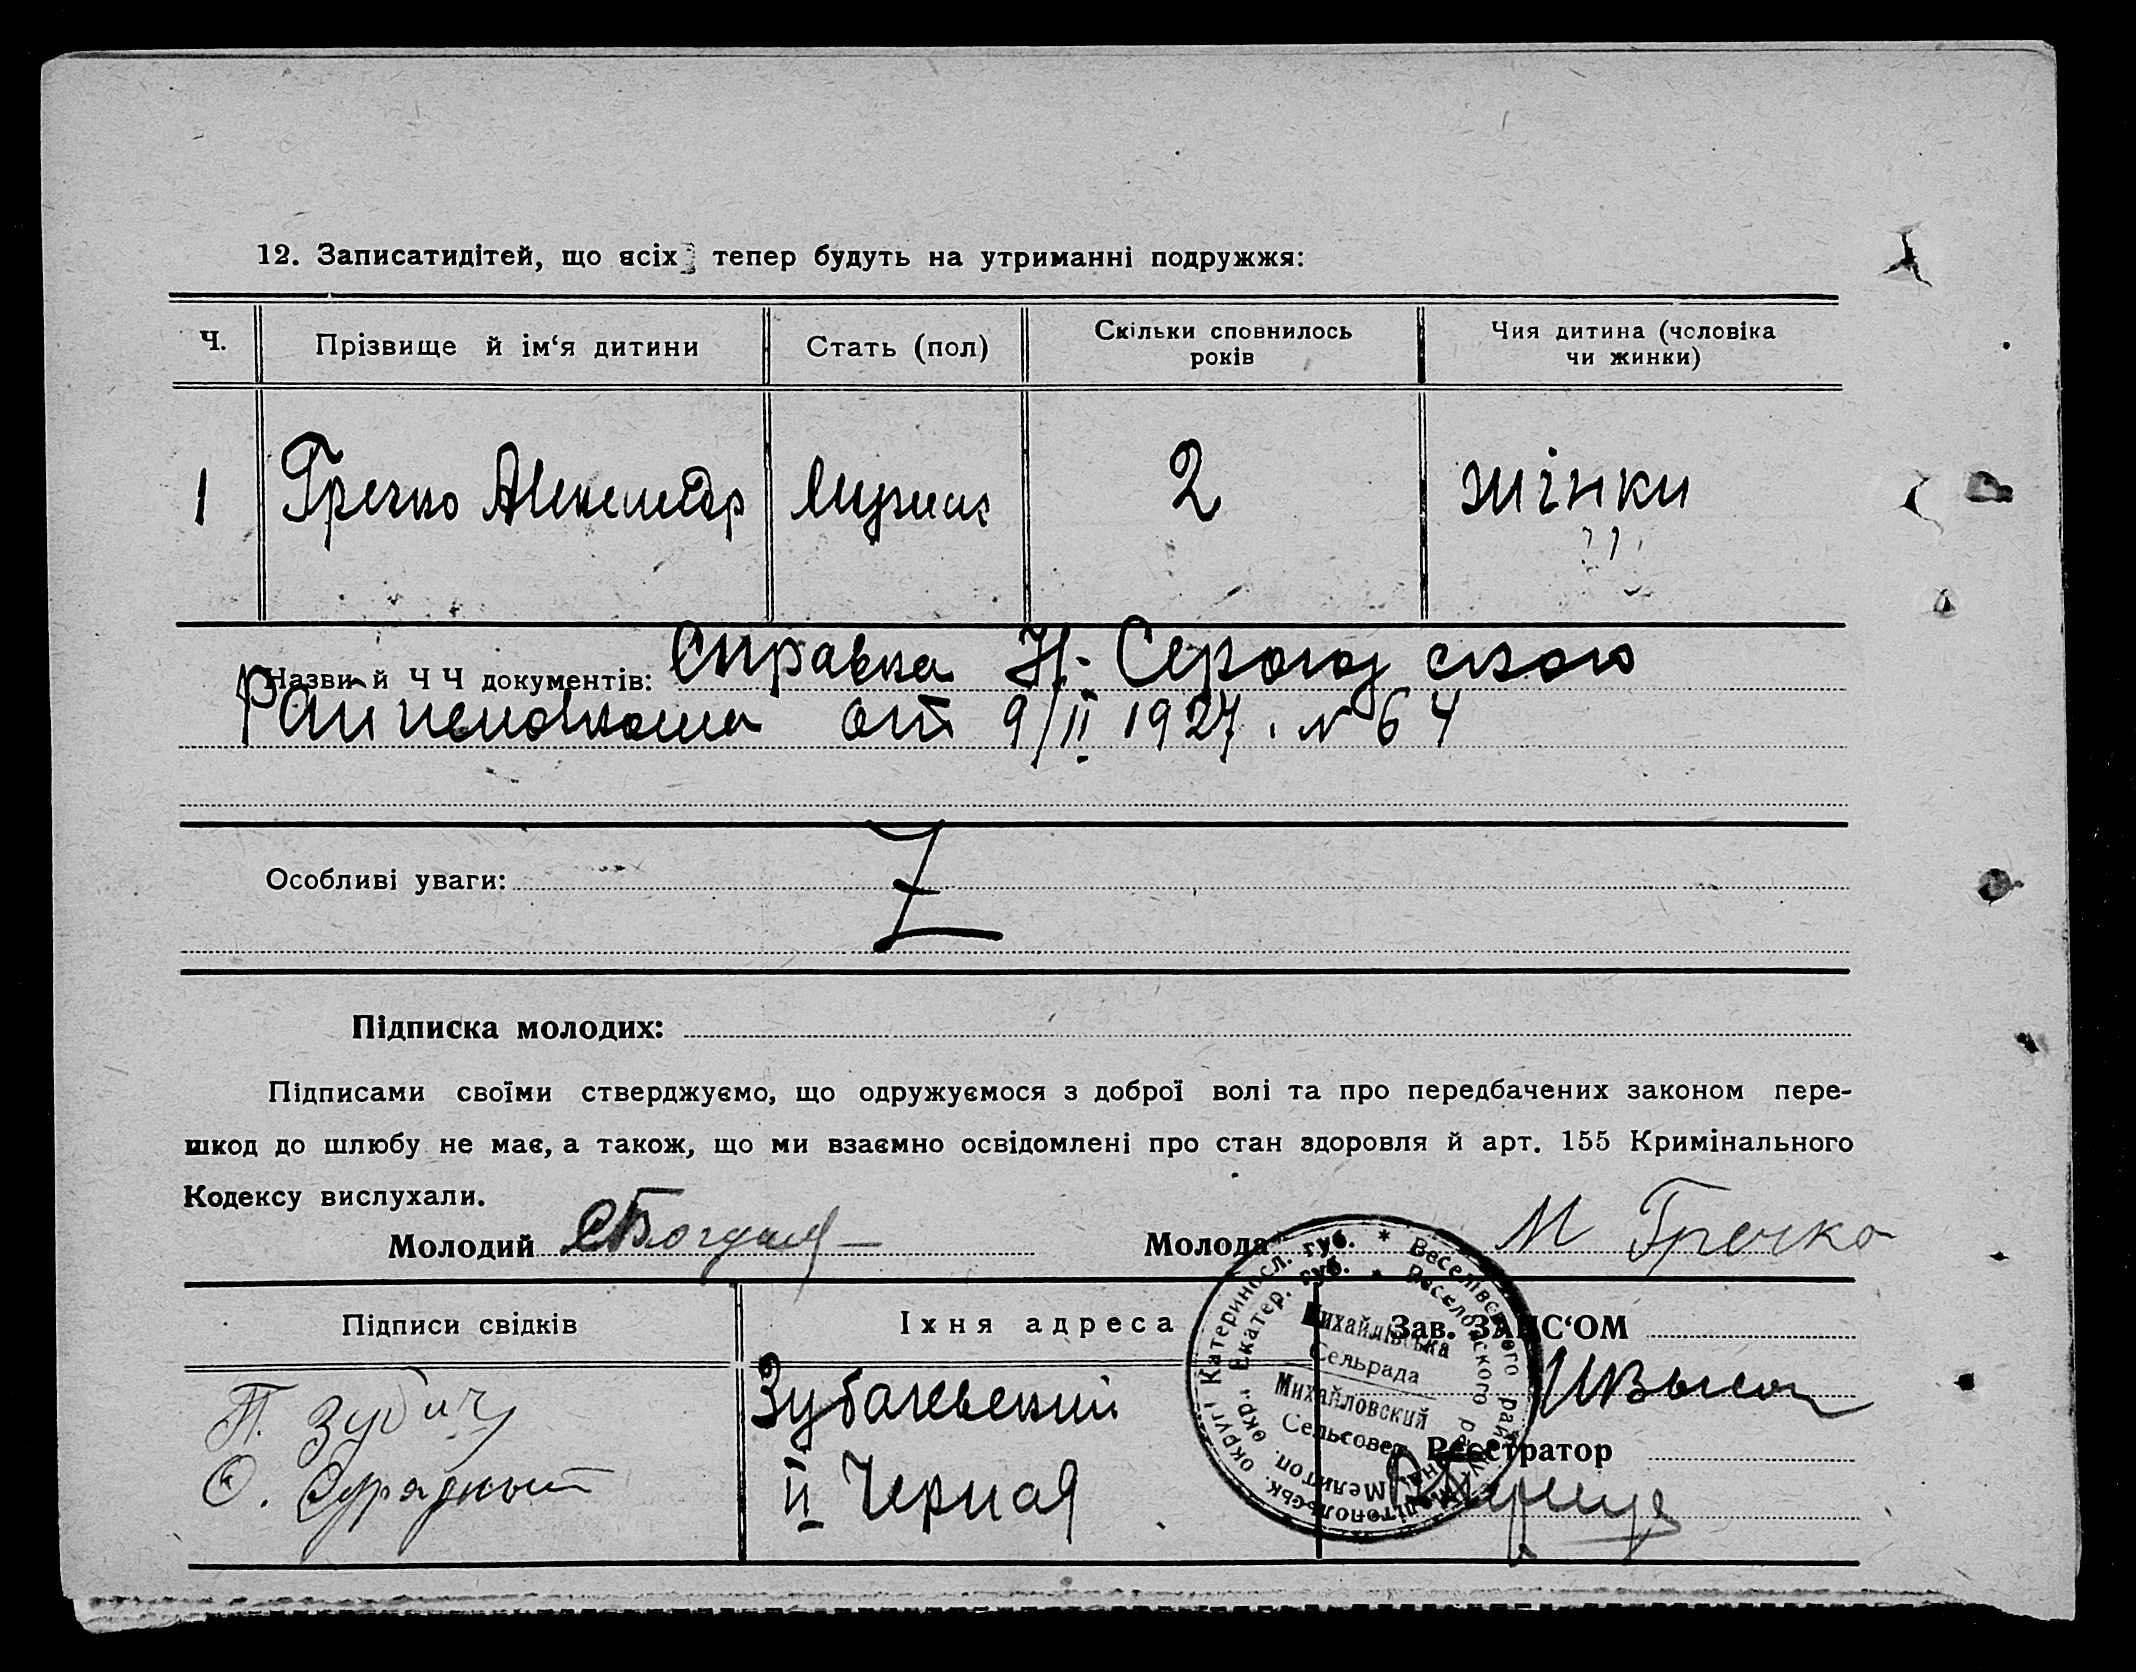 12. Записатидітей, що всіх тепер будуть на утриманні подружжя:
Ч. Прізвище й ім‘я дитини Стать (пол) Скільки сповнилось років Чия дитина (чоловіка чи жинки)
1 Гречко Александр 2 жінки
Назви й Ч Ч документів: Справка Н. Серогоз ского
Райисполкома от 9/II 1927. № 64
Особливі уваги: Z
Підписка молодих:
Підписами своїми стверджуємо, що одружуємося з доброї волі та про передбачених законом пере-
шкод до шлюбу не має, а також, що ми взаємно освідомлені про стан здоровля й арт. 155 Кримінального
Кодексу вислухали.
Молодий Молода М Гречко
Підписи свідків Їхня адреса Зав. ЗАГС‘ОМ
П.
О. II Черная
Реєстратор
Катериносл. губ. * Веселівського району Мелітопольськ. округи
Екатер. губ. * Веселовского р-на, Мелитоп. окр.
Михайлівська
Сельрада
Михайловский
Сельсовет